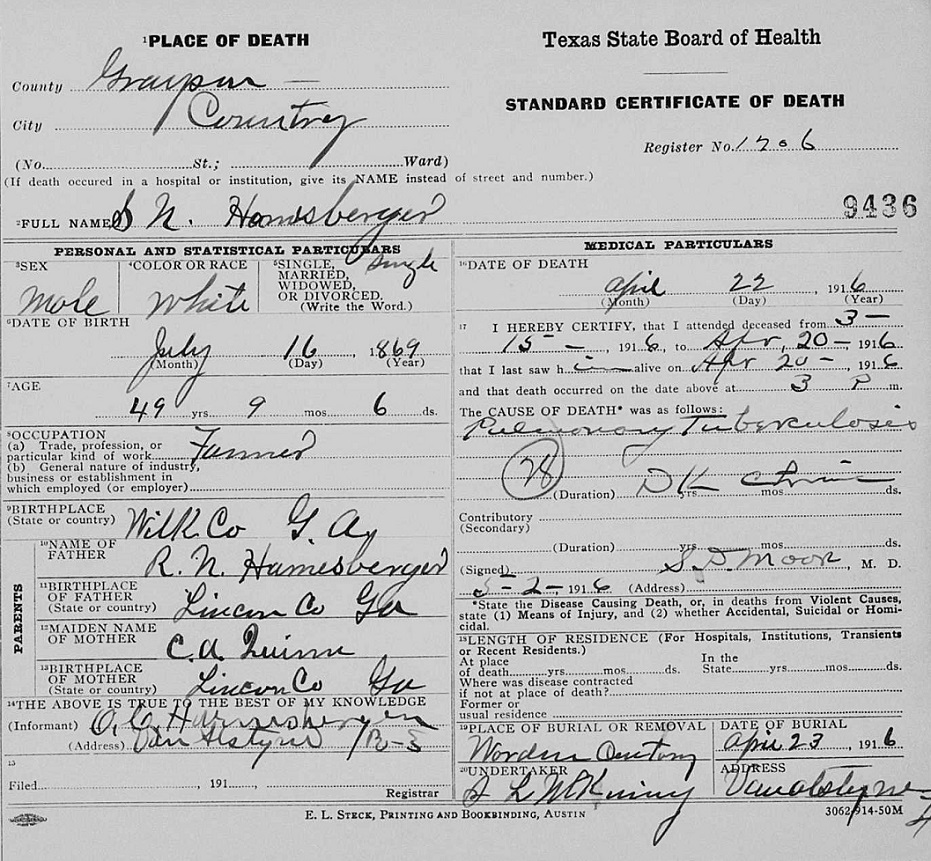 1PLACE OF DEATH
County Grayson
City Country
(No. St.; Ward)
(If death occured in a hospital or institution, give its NAME instead of street and number.)
2FULL NAME S N. Harnesberger
Texas State Board of Health
STANDARD CERTIFICATE OF DEATH
Register No. 1706
9436
PERSONAL AND STATISTICAL PARTICULARS
3SEX
Male
4COLOR OR RACE
White
5SINGLE, MARRIED, WIDOWED, OR DIVORCED. (Write the Word.)
Single
6DATE OF BIRTH
July 16, 1869
(Month) (Day) (Year)
7AGE
49 yrs 9 mos 6 ds.
8OCCUPATION
(a) Trade, profession, or
particular kind of work Farmer
(b) General nature of industry,
business or establishment in
which employed (or employer)
9BIRTHPLACE
(State or country) Wilk Co G.
PARENTS
10NAME OF
FATHER R. N. Harnesberger
11BIRTHPLACE
OF FATHER
(State or country) Lincon Co Ga
12MAIDEN NAME
OF MOTHER C. A. Quinn
13BIRTHPLACE
OF MOTHER
(State or country) Lincon Co Ga
14THE ABOVE IS TRUE TO THE BEST OF MY KNOWLEDGE
(Informant) Harnesberger
(Address) Van Alstyne R-3
15
Filed , 191
Registrar
MEDICAL PARTICULARS
16DATE OF DEATH
April 22, 1916
(Month) (Day) (Year)
17 I HEREBY CERTIFY, that I attended deceased from 3 -
15 - , 1916, to Apr, 20 - 1916
that I last saw h im alive on Apr 20 - , 1916
and that death occurred on the date above at 3 P m.
The CAUSE OF DEATH* was as follows:
Pulmonary Tuberculosis
28
(Duration) D K yrs mos ds.
Contributory
(Secondary)
(Duration) yrs mos ds.
(Signed) S. D. Moor, M. D.
5-2-, 1916 (Address)
*State the Disease Causing Death, or, in deaths from Violent Causes,
state (1) Means of Injury, and (2) whether Accidental, Suicidal or Homi-
cidal.
18LENGTH OF RESIDENCE (For Hospitals, Institutions, Transients
or Recent Residents.)
At place In the
of death yrs mos ds. State yrs mos ds.
Where was disease contracted
if not at place of death?
Former or
usual residence
19PLACE OF BURIAL OR REMOVAL
DATE OF BURIAL
April 23, 1916
20UNDERTAKER
J L McKinney
ADDRESS
Vanalstyne
E. L. STECK, PRINTING AND BOOKBINDING, AUSTIN
3062-914-50M